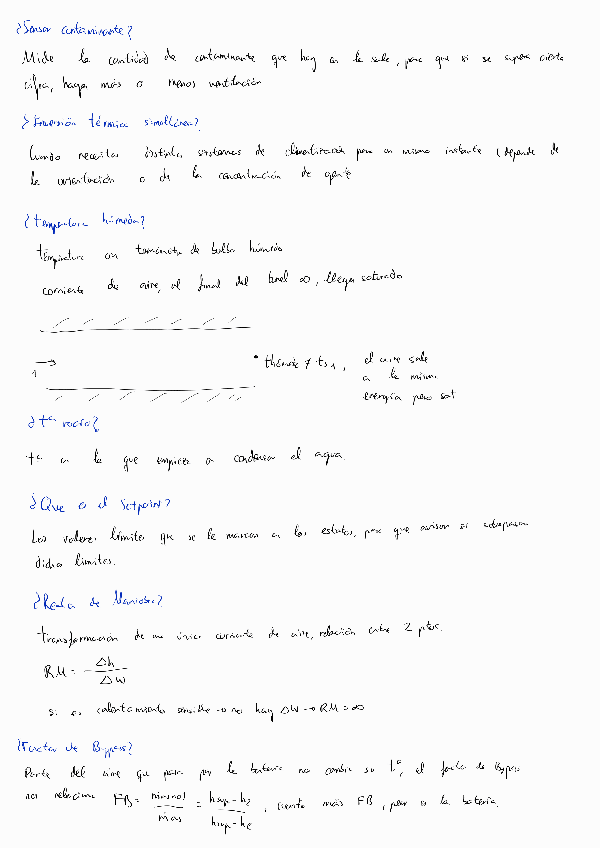 ¿Sensor contaminante?
Mide la cantidad de contaminante que hay en la sala, para que si se supera cierta
cifra, haga más o menos ventilación
¿Inversión térmica simultánea?
Cuando necesitas distintos sistemas de climatización para un mismo instante (depende de
la orientación o de la concentración de gente
¿temperatura húmeda?
témperatura con termómetro de bulbo húmedo
corriente de aire, al final del túnel ∞, llega saturado
1 → • thúmeda ≠ ts1, el aire sale
a la misma
energía pero sat
¿tª rocío?
tª a la que empieza a condensar el agua.
¿Que es el Setpoint?
Los valores límites que se le marcan a los, para que avisen si sobrepasan
dichos límites.
¿Recta de Maniobra?
transformación de una única corriente de aire, relación entre 2 ptos.
RM = - Δh / ΔW
si es calentamiento sensible → no hay ΔW → RM = ∞
¿Factor de Bypass?
Parte del aire que pasa por la batería no cambia su tª, el factor de Bypass
nos relaciona FB = / = hsup - h2 / hsup - he, cuanto más FB, peor es la batería.